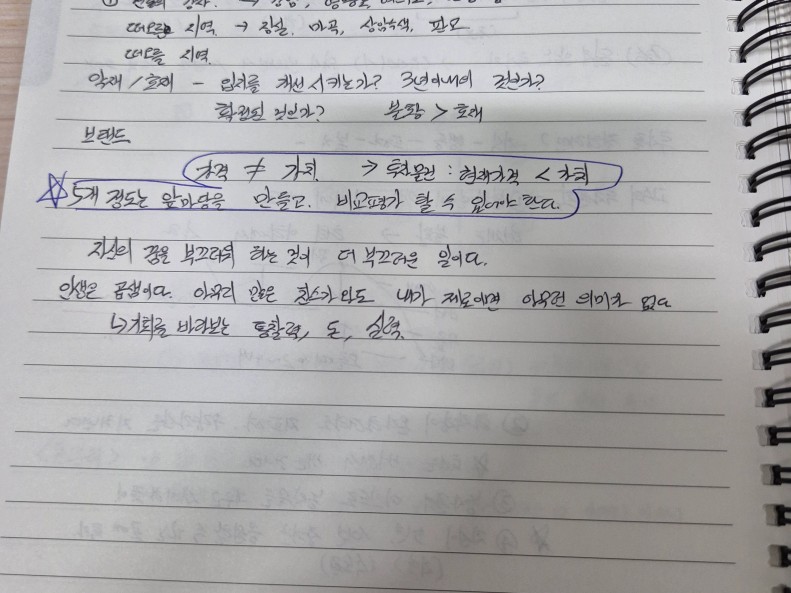 떠오르는 지역 → 잠실, 마곡, 상암수색, 판교
떠오를 지역
악재 / 호재 - 입지를 개선시키는가? 3년이내의 것인가?
확정된 것인가? 불황 > 호재
브랜드
가격 ≠ 가치 → 투자물건 : 현재가격 < 가치
☆ 5개 정도는 앞마당을 만들고, 비교평가 할 수 있어야 한다.
자신의 꿈을 부끄러워 하는 것이 더 부끄러운 일이다.
인생은 곱셈이다. 아무리 많은 찬스가 와도 내가 제로이면 아무런 의미가 없다
↳ 기회를 바라보는 통찰력, 돈, 실력.